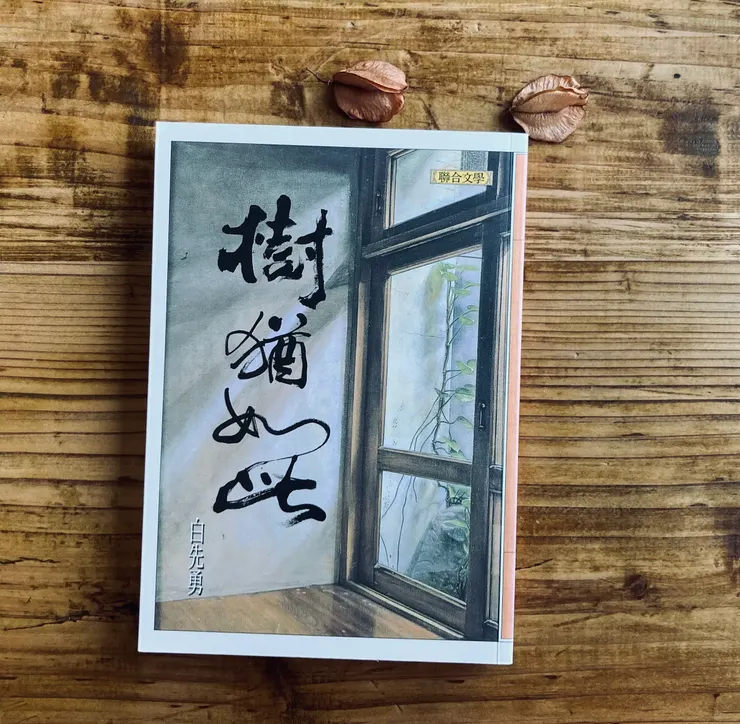 聯合文學
樹猶如此
白先勇